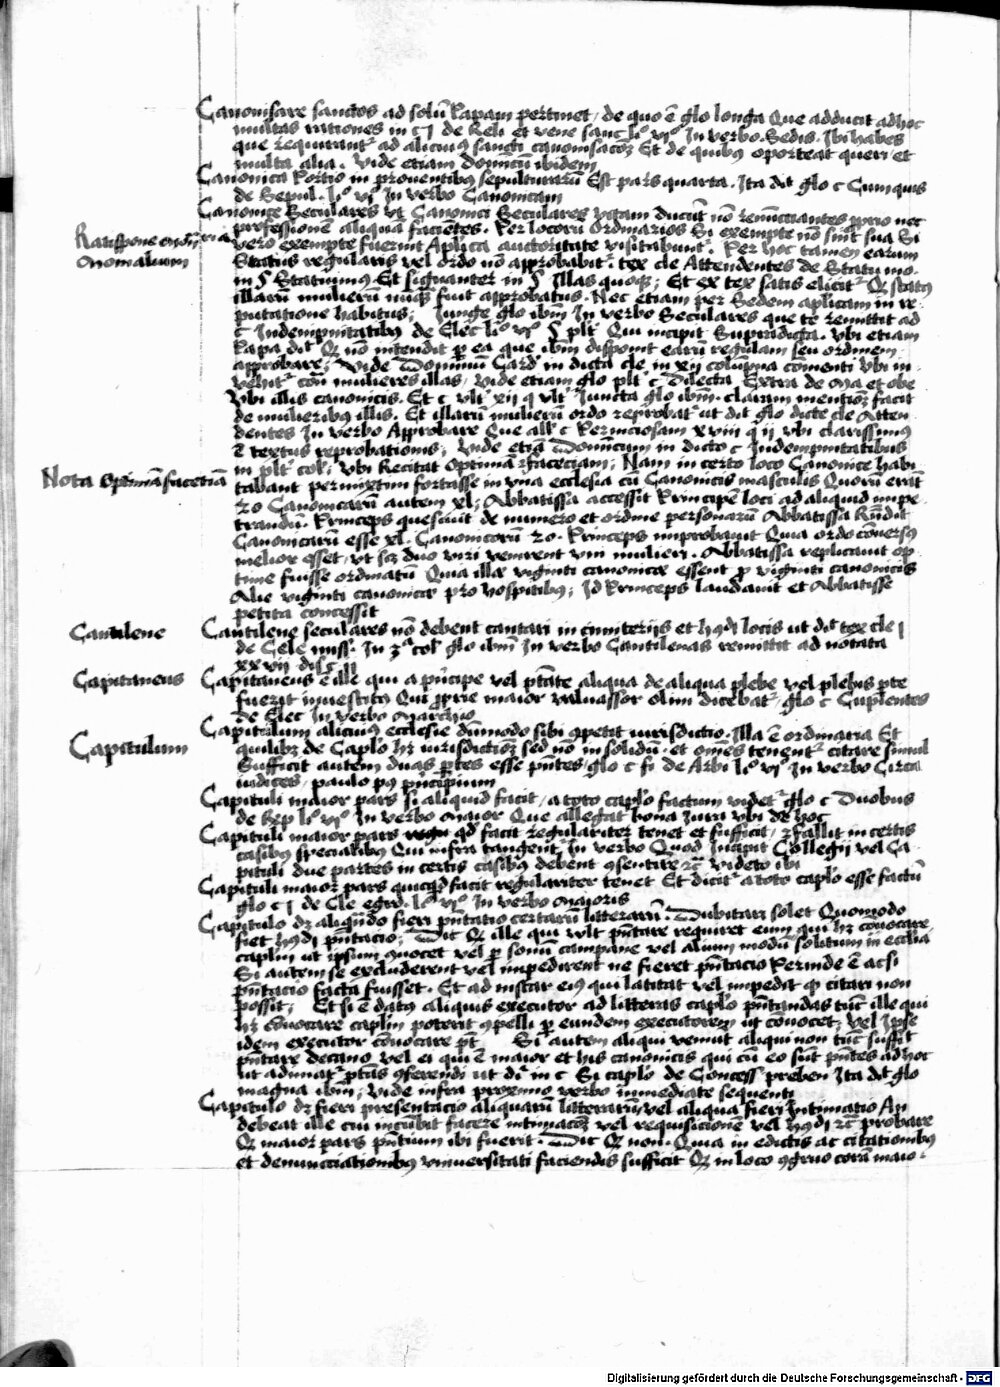 Canonisare sanctos ad solū Papam pertinet, de quo ē glo longa Que adducit adhoc
multas rationes in c j de Reli et vene sanc li° vi° In verbo Sedis. Ibi habes
que requirantr ad alicuiꝰ sancti canonisacoȝ Et de quibꝰ oporteat queri et
multa alia. Vide etiam Dominicū ibidem
Canonica Portio in prouentibꝰ sepulturarū Est pars quarta. Ita dit glo c Cumquis
de Sepul. li° vi° In verbo Canonicam
Canonice Seculares vt Canonici Seculares vitam ducūt nō renūciantes pprio nec
professionē aliqua facientes. Per locorū Ordinarios Si exempte nō sint sua Si
Ratisspone
Anomalium
vero exempte fuerint Aplica auctoritate visitabuntr. Per hoc tamen earum
Status regularis vel ordo nō approbabitr. tex cle Attendentes de Statu mo.
in § Statuimus Et signanter in § Illas quoqȝ; Et ex tex satis elicitr Qȝ status
illarū mulierū nūqȝ fuit approbatus. Nec etiam per Sedem aplicam in re
putatione habitus; Iunge glo ibm In verbo Seculares que te remittit ad
c Indempnitatibꝰ de Elec li° vi° § plt Qui incipit Supradicta. Vbi etiam
Papa dit Qȝ nō intendit p ea que ibm disponit earū regulam seu ordinem
approbare; Vide Dominū Card in dicta cle in xij columna comenti vbi in
vehitr con mulieres illas, vide etiam glo plt c Dilecta Extra de Ma et obe
Vbi illis canonicis. Et c vlt xij q vlt Iuncta glo ibm. claram mentioȝ facit
de mulieribꝰ illis. Et illarū mulierū ordo reprobatr ut dit glo dicte cle Atten
dentes In verbo Approbare Que allt c Perniciosam xviij q ij vbi clarissimus
ē textus reprobationis; Vide etiā Dominicum in dicto c Indempnitatibus
in plt col; Vbi Recitat Optimā facetiam; Nam in certo loco Canonice habi
Nota Optimā facetiā
tabant permixtim fortasse in vna ecclesia cū Canonicis masculis Quorū erāt
20 Canonicarū autem xl; Abbatissa accessit Principē loci ad aliquid impe
trandū. Princeps quesiuit de numero et ordine personarū Abbatissa Rn̄dit
Canonicarū esse xl. Canonicorū 20. Princeps improbauit Quia ordo cōuersꝰ
melior esset, vt scȝ duo viri venirent vni mulieri. Abbatissa replicauit op
time fuisse ordinatū Quia illæ viginti canonicæ essent p viginti canonicis
Alie viginti canonicæ pro hospitibꝰ; Id Princeps laudauit et Abbatisse
petita concessit
Cantilene
Cantilene seculares nō debent cantari in cimiterijs et hmōi locis ut dit tex cle j
de Cele miss. In 3a col glo ibm In verbo Cantilenas remittit ad notata
Capitaneus
Capitaneus ē ille qui a principe vel ptāte aliqua de aliqua plebe vel plebis pte
fuerit inuestitꝰ Qui pprie maior valuassor olim dicebatr, glo c Cupientes
de Elec In verbo Marchio
Capitulum
Capitulum alicuius ecclesie dūmodo sibi ꝯpetit iurisdictio. Illa ē ordinaria Et
quilibȝ de Caplo hȝ iurisdictioȝ sed nō in solidū. et omēs tenentr citare simul
Sufficit autem duas ptes esse pn̄tes, glo c fi de Arbi li° vi° In verbo Circa
iudices, paulo pꝰ principium
Capituli maior pars si aliquid facit, a toto caplo factum videtr glo c Duobus
de Rep li° vi° In verbo Maior Que allegat bona Iura vbi de hoc
Capituli maior pars qd facit regulariter tenet et sufficit, fallit in certis
casibꝰ specialibꝰ Qui infra tangentr In verbo Quod Incipit Collegij vel Ca
pituli due partes in certis casibꝰ debent ꝯsentire rc videto ibi
Capituli maior pars quicqd facit regulariter tenet Et dicitr a toto caplo esse factū
glo c j de Cle egrd. li° vi° In verbo Maioris
Capitulo dȝ aliqn̄do fieri pn̄tatio certarū litterarū. Dubitari solet Quomodo
fiet hmōi pn̄tacio; Dic Qȝ ille qui vult pn̄tare requiret eum qui hȝ cōuocare
caplm ut ipsum ꝯuocet vel p sonum campane vel alium modū solitum in ecclia
Si autem se excluderent vel impedirent ne fieret pn̄tacio Perinde ē acsi
pn̄tacio facta fuisset. Et ad instar eiꝰ qui latitat vel impedit qȝ citari non
possit; Et si ē datꝰ aliquis executor ad litteras caplo pn̄tandas tūc ille qui
hȝ cōuocare caplm poterit ꝯpelli p eundem executorem ut cōuocet; vel Ipse
idem executor cōuocare pt Si autem aliqui veniūt aliqui non tūc sufficit
pn̄tare decano vel ei qui ē maior et his canonicis qui cū eo sūt pn̄tes ad hoc
ut adimatr ptās ꝯferendi ut dr in c Si caplo de Concess preben Ita dit glo
magna ibm; Vide infra proximo verbo immediate sequenti
Capitulo dȝ fieri presentacio aliquarū litterarū, vel aliqua fieri Intimatio An
debeat ille cui incūbit facere intimacoȝ vel requisicionem vel hmōi rc probare
Qȝ maior pars pn̄tium ibi fuerit. Dic Qȝ non. Quia in edictis ac citationibꝰ
et denunciationibꝰ vniuersitati faciendis sufficit Qȝ in loco ꝯgruo corā maio
Digitalisierung gefördert durch die Deutsche Forschungsgemeinschaft - DFG